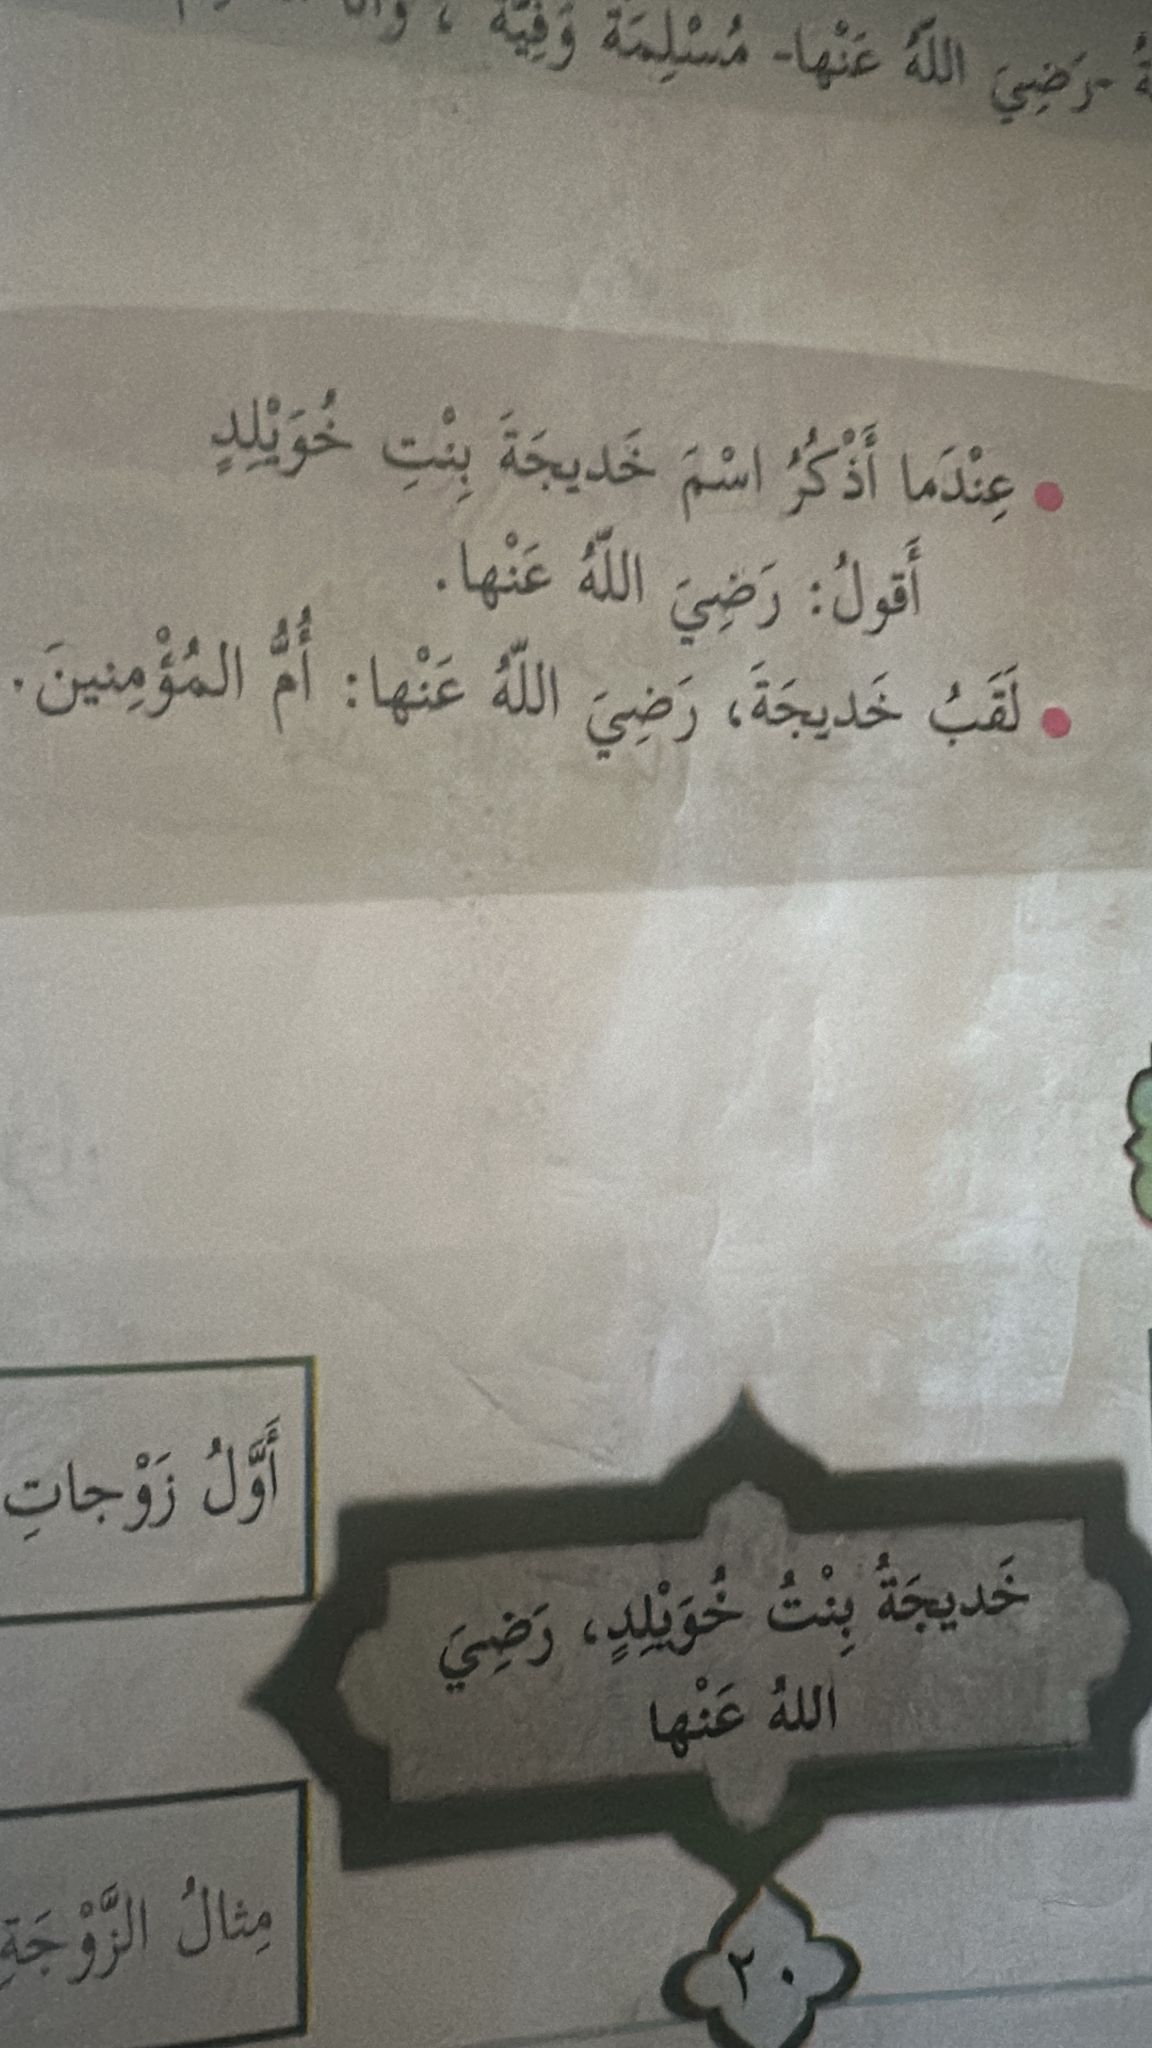 -رَضِيَ اللَّهُ عَنْها- مُسْلِمَةٌ وَفِيَّةٌ ،
عِنْدَما أَذْكُرُ اسْمَ خَديجَةَ بِنْتِ خُوَيْلِدٍ
أَقولُ: رَضِيَ اللَّهُ عَنْها.
لَقَبُ خَديجَةَ، رَضِيَ اللَّهُ عَنْها: أُمُّ المُؤْمِنينَ.
أَوَّلُ زَوْجاتِ
خَديجَةُ بِنْتُ خُوَيْلِدٍ، رَضِيَ
اللهُ عَنْها
مِثالُ الزَّوْجَةِ
٢٠